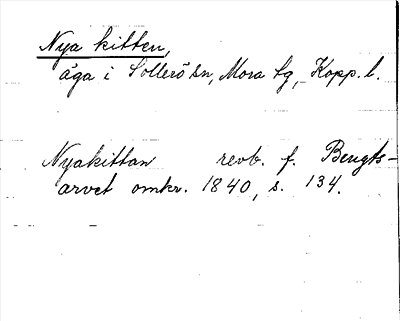 Nya kitten,
äga i Sollerö sn, Mora tg, Kopp. l.
Nyakittan revb. f. Bengts-
arvet omkr. 1840, s. 134.